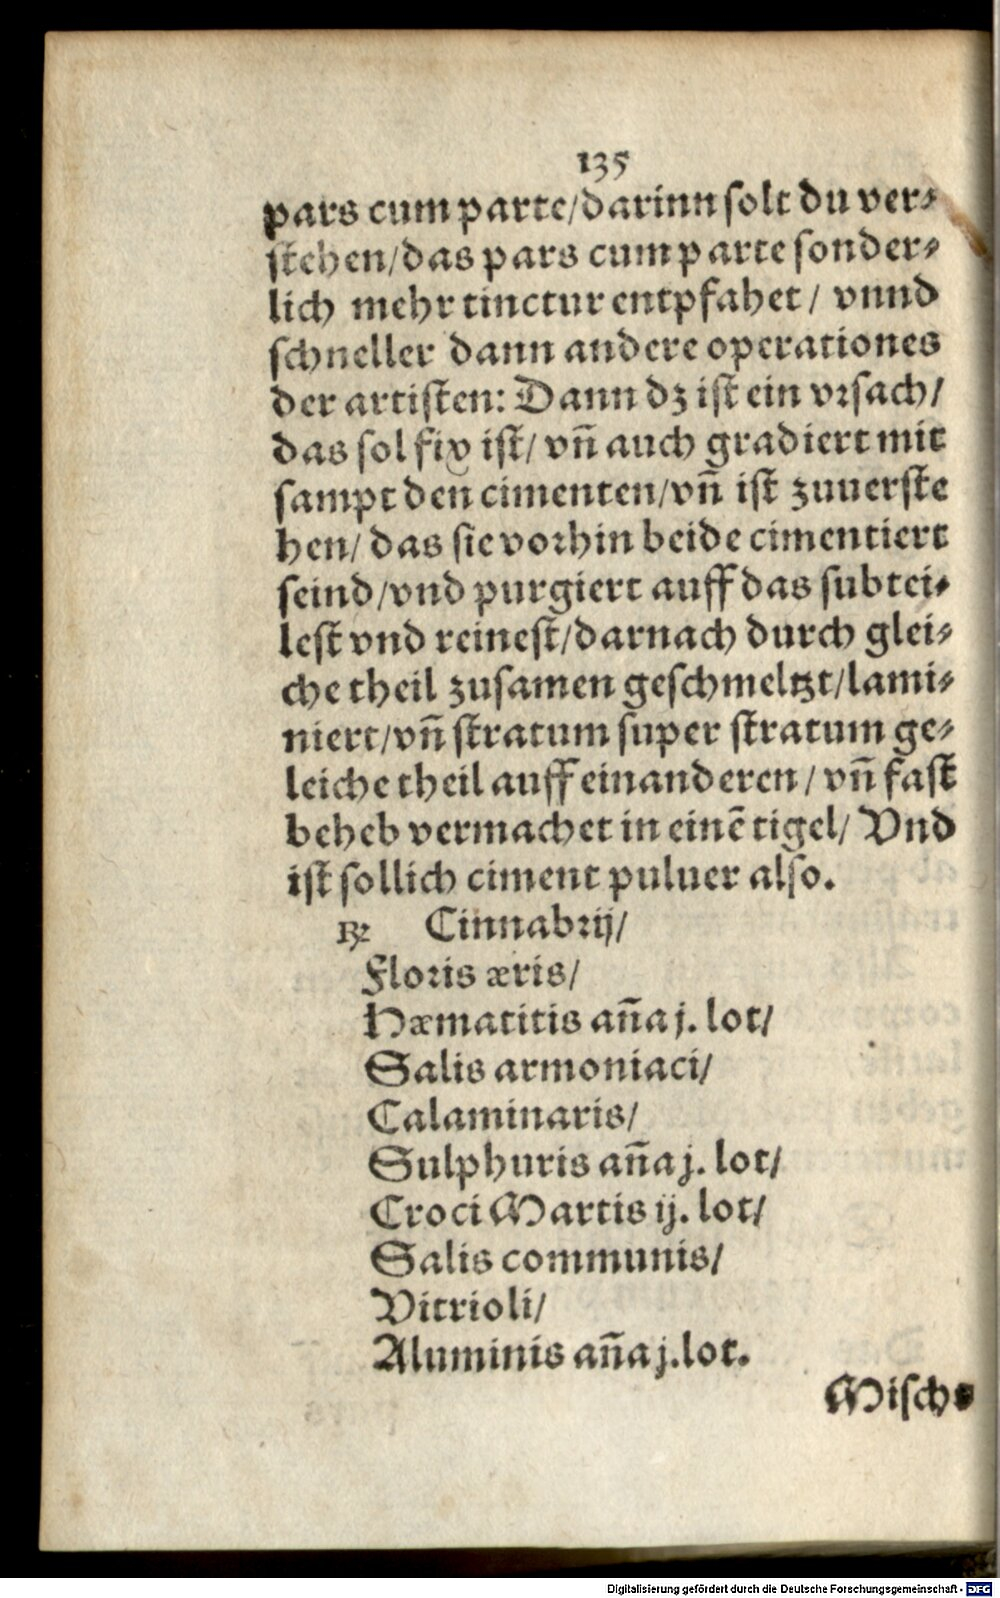 135
pars cum parte/darinn solt du ver⸗
stehen/das pars cum parte sonder⸗
lich mehr tinctur entpfahet/ vnnd
schneller dann andere operationes
der artisten: Dann dz ist ein vrsach/
das sol fix ist/ vñ auch gradiert mit
sampt den cimenten/vñ ist zuuerste
hen/ das sie vorhin beide cimentiert
seind/vnd purgiert auff das subtei⸗
lest vnd reinest/darnach durch glei⸗
che theil zusamen geschmeltzt/lami⸗
niert/vñ stratum super stratum ge⸗
leiche theil auff einanderen/ vñ fast
beheb vermachet in einẽ tigel/ Vnd
ist sollich ciment puluer also.
℞ Cinnabrij/
Floris æris/
Hæmatitis aña j. lot/
Salis armoniaci/
Calaminaris/
Sulphuris aña j. lot/
Croci Martis ij. lot/
Salis communis/
Vitrioli/
Aluminis aña j. lot.
Misch⸗
Digitalisierung gefördert durch die Deutsche Forschungsgemeinschaft - DFG